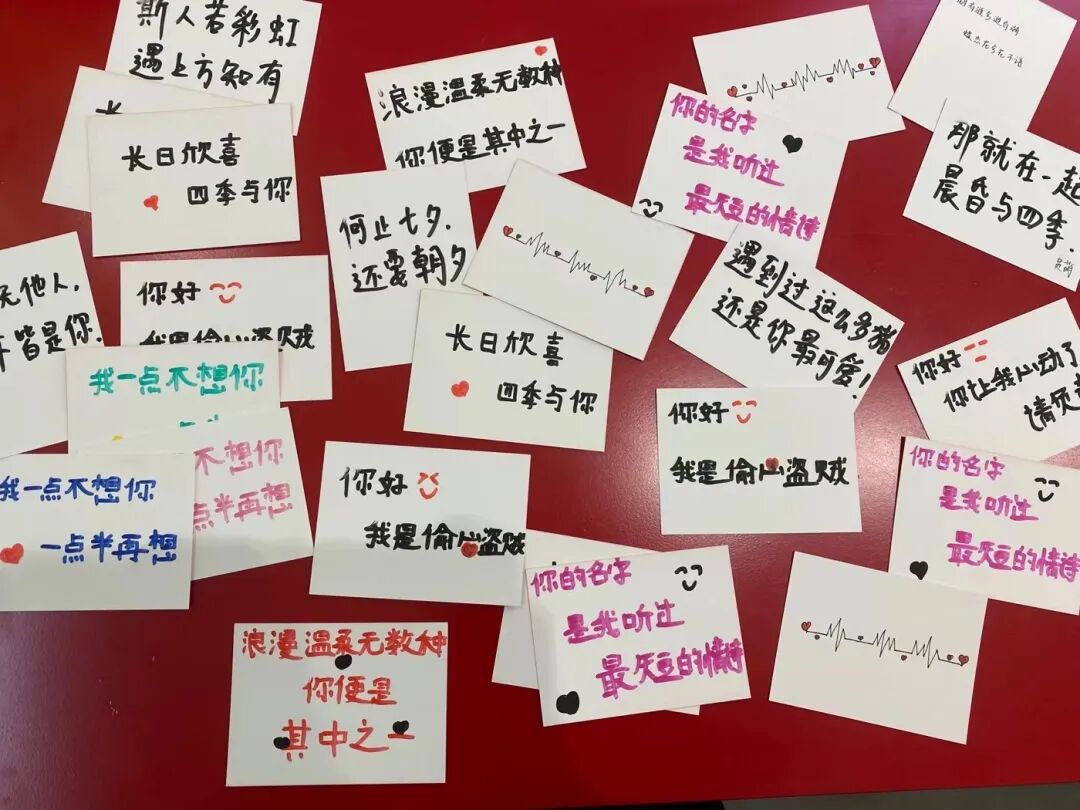 斯人若彩虹
遇上方知有
长日欣喜
四季与你
浪漫温柔无数种
你便是其中之一
你的名字
是我听过
最短的情诗
那就在一起
晨昏与四季.
何止七夕.
还要朝夕
无他人.
皆是你.
你好
我是偷心盗贼
长日欣喜
四季与你
遇到过这么多猪
还是你最可爱!
你好
你让我心动了
请负责
我一点不想你
我一点不想你
一点半再想
不想你
点半再想
你好
我是偷心盗贼
你好
我是偷心盗贼
你的名字
是我听过
最短的情诗
你的名字
是我听过
最短的情诗
浪漫温柔无数种
你便是
其中之一